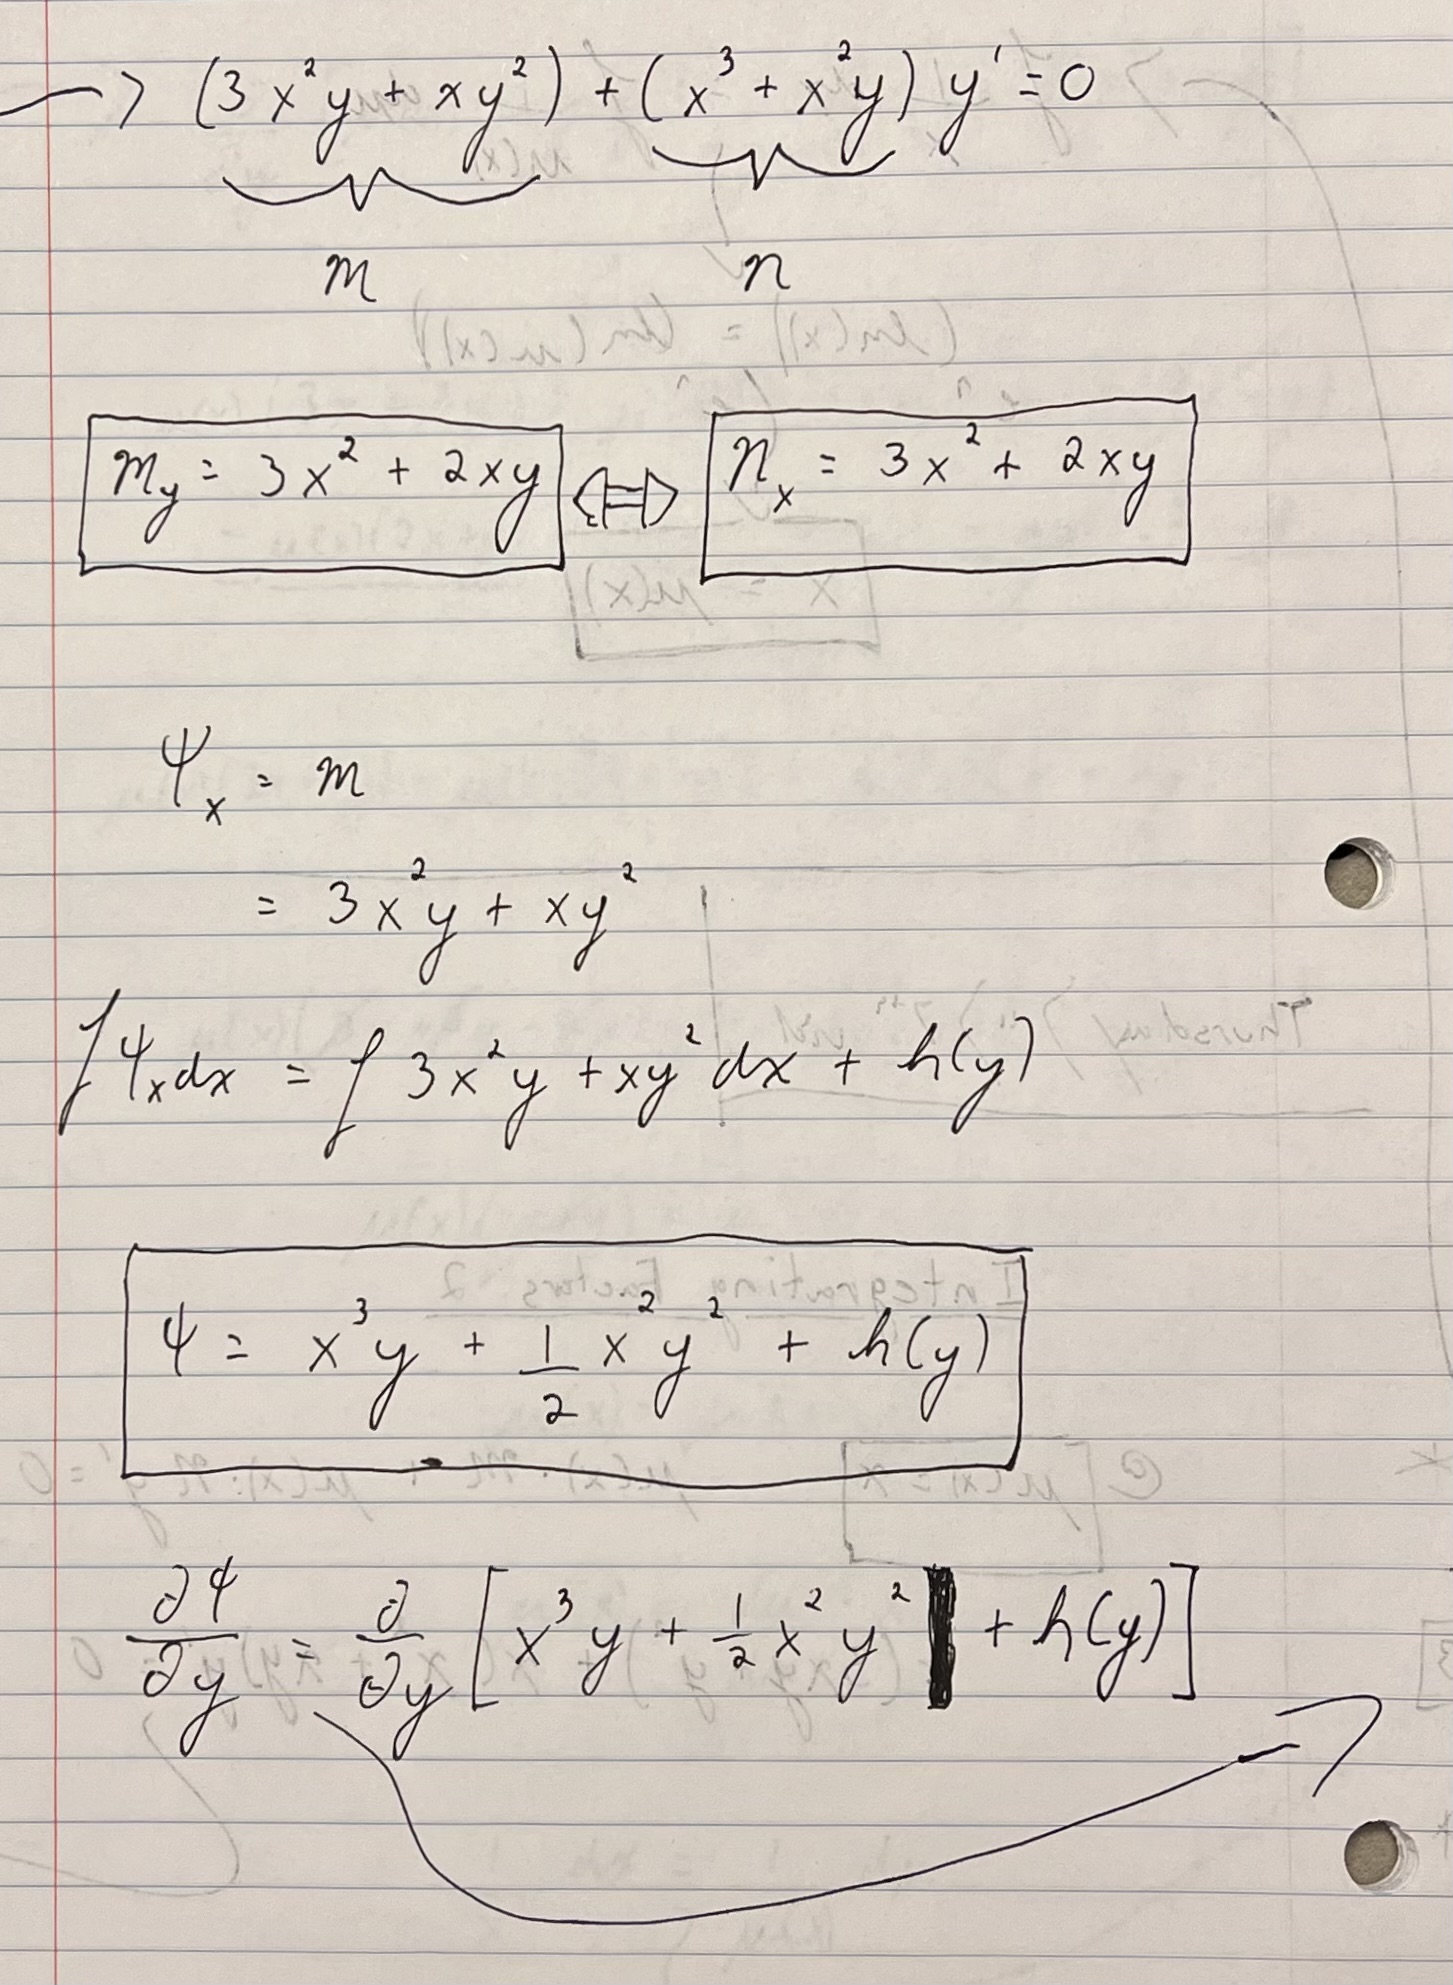 → (3x²y + xy²) + (x³ + x²y) y' = 0
m n
m_y = 3x² + 2xy ⇔ n_x = 3x² + 2xy
Ψ_x = m
= 3x²y + xy²
∫ Ψ_x dx = ∫ 3x²y + xy² dx + h(y)
Ψ = x³y + 1/2 x²y² + h(y)
∂Ψ/∂y = ∂/∂y [x³y + 1/2 x²y² + h(y)]